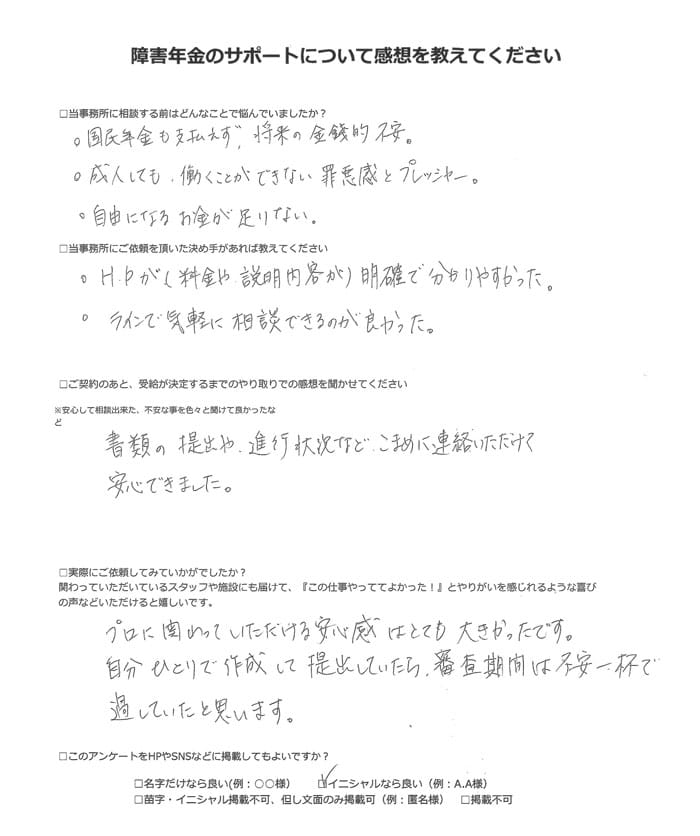 障害年金のサポートについて感想を教えてください
□当事務所に相談する前はどんなことで悩んでいましたか?
。国民年金も支払えず、将来の金銭的不安。
。成人しても、働くことができない罪悪感とプレッシャー。
。自由になるお金が足りない。
□当事務所にご依頼を頂いた決め手があれば教えてください
。H.Pが(料金や、説明内容が)明確で分かりやすかった。
。ラインで気軽に相談できるのが良かった。
□ご契約のあと、受給が決定するまでのやり取りでの感想を聞かせてください
※安心して相談出来た、不安な事を色々と聞けて良かったな
ど
書類の提出や、進行状況など、こまめに連絡いただけて
安心できました。
□実際にご依頼してみていかがでしたか?
関わっていただいているスタッフや施設にも届けて、『この仕事やっててよかった!』とやりがいを感じれるような喜び
の声などいただけると嬉しいです。
プロに関わっていただける安心感はとても大きかったです。
自分ひとりで作成して提出していたら、審査期間は不安一杯で
過していたと思います。
□このアンケートをHPやSNSなどに掲載してもよいですか?
□名字だけなら良い(例:〇〇様) ☑イニシャルなら良い(例:A.A様)
□苗字・イニシャル掲載不可、但し文面のみ掲載可(例:匿名様) □掲載不可